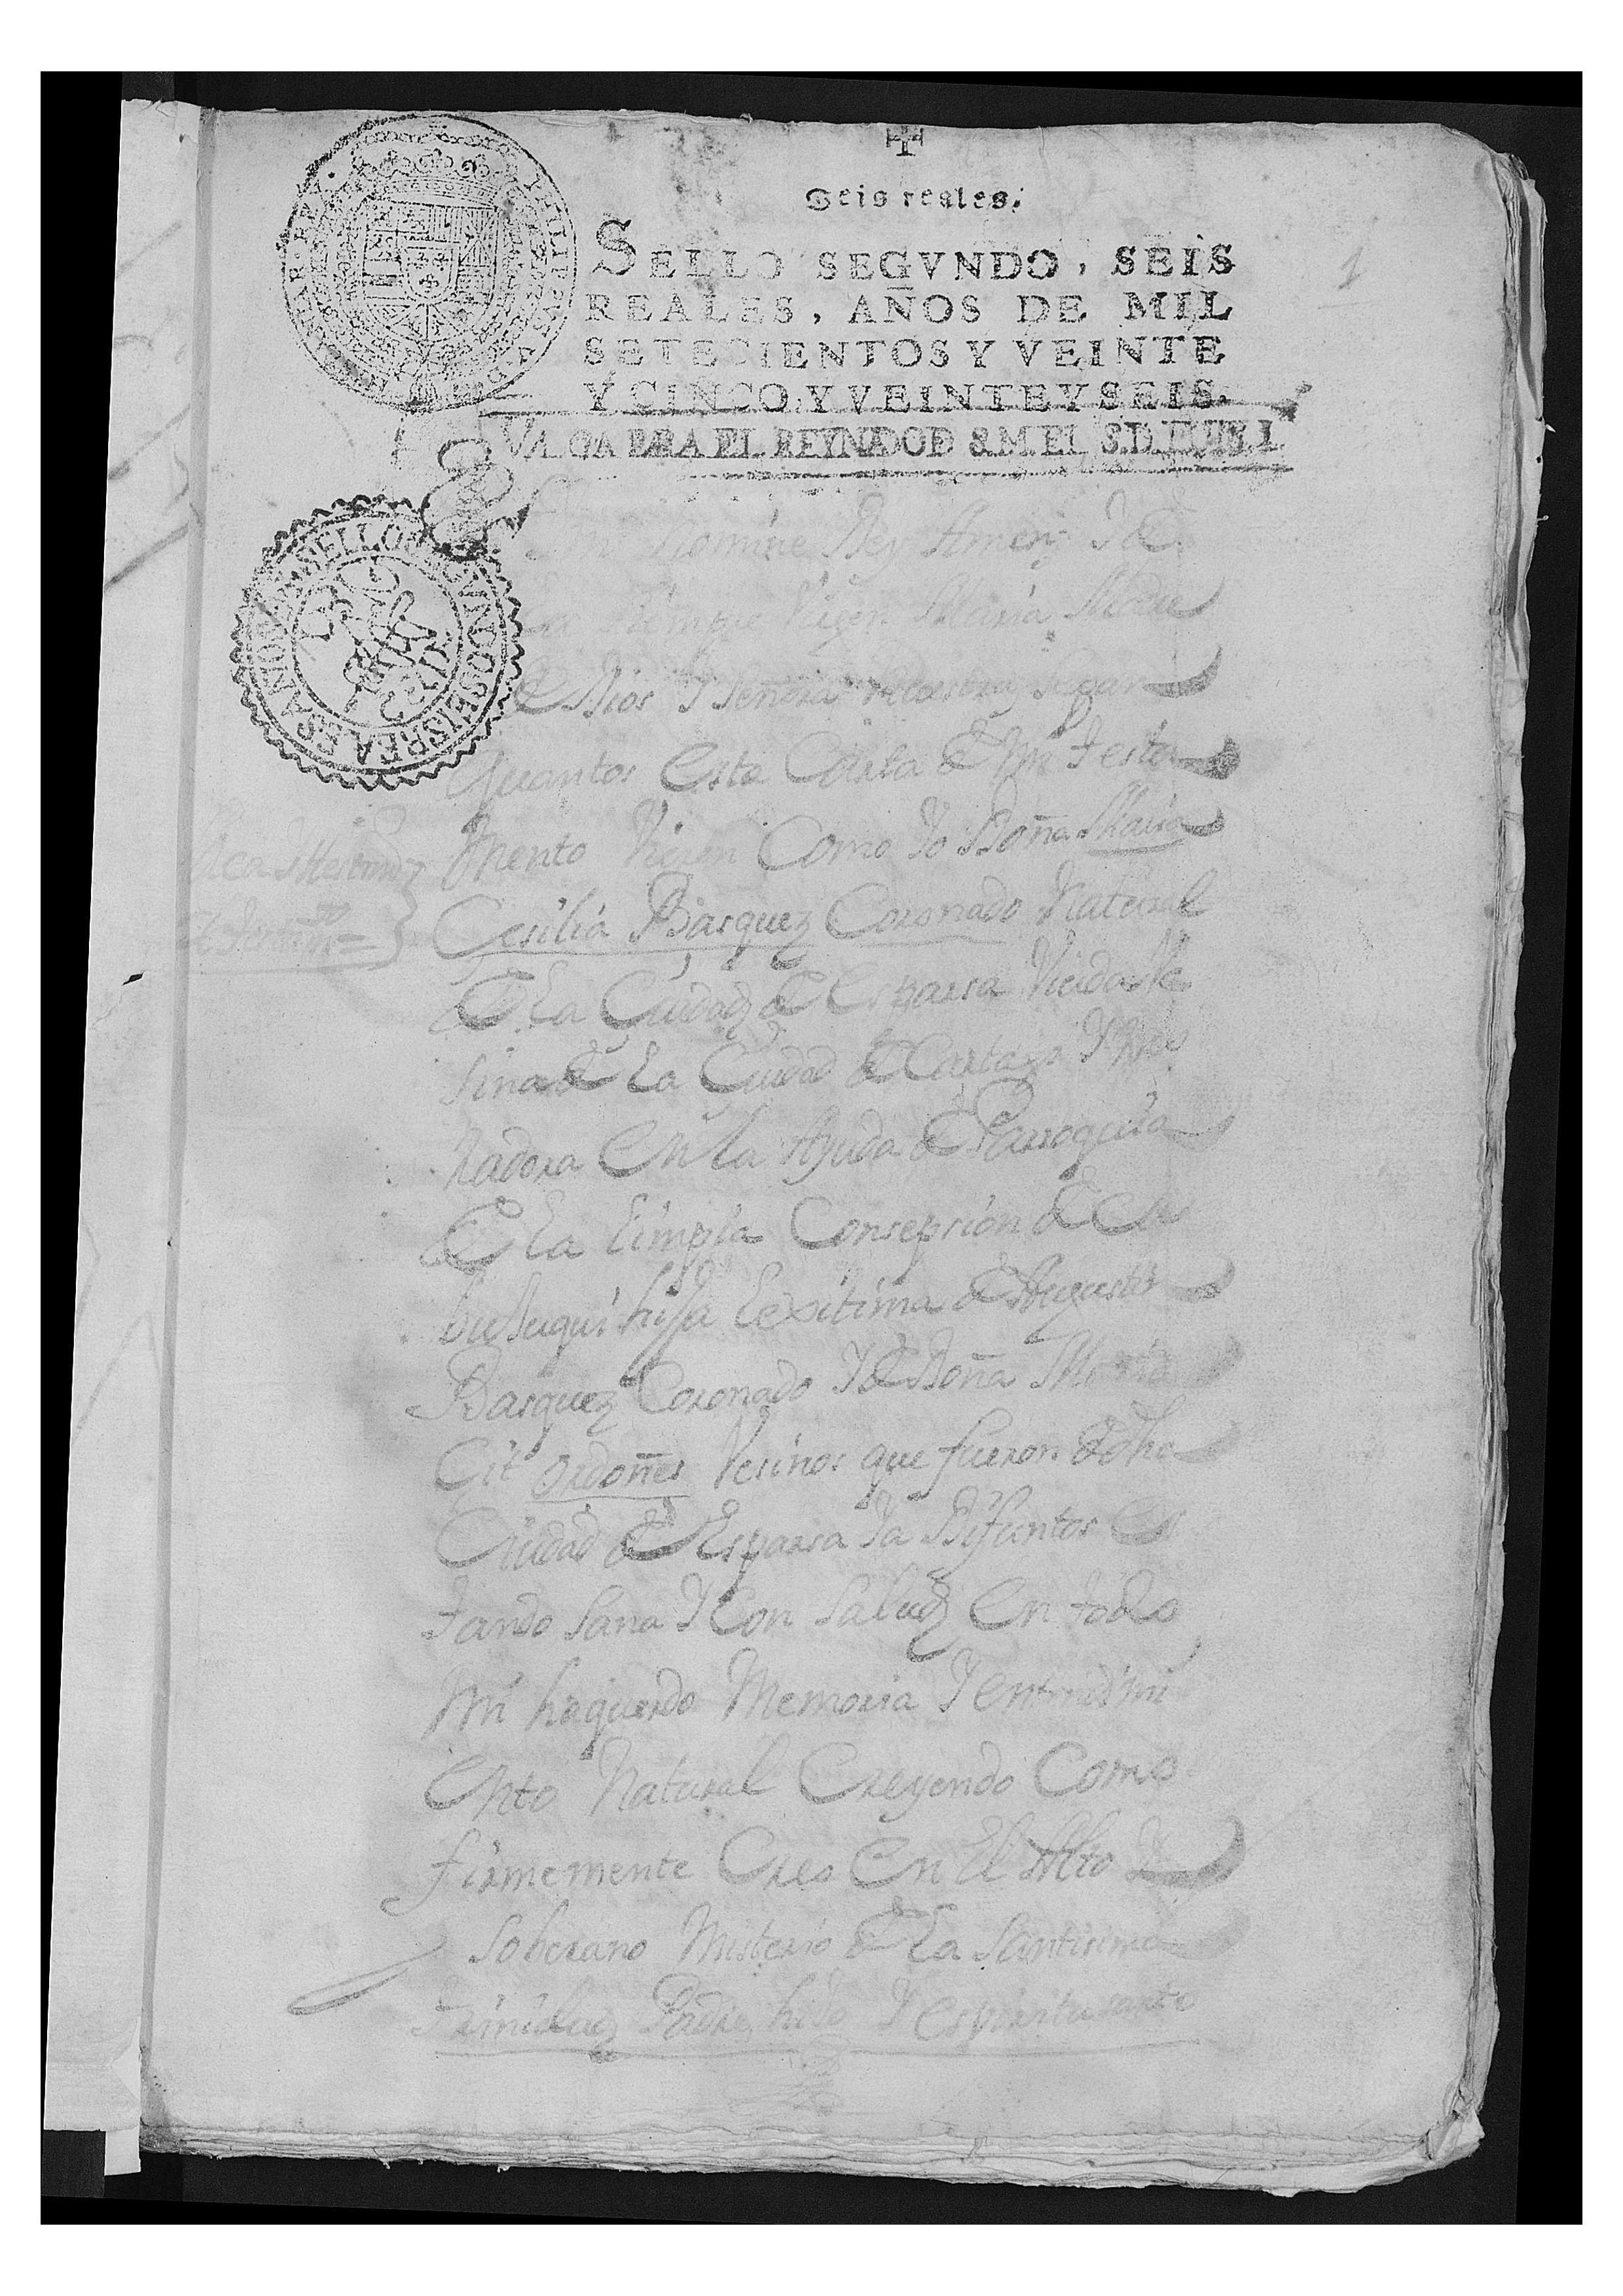 Seis reales.
1
SELLO SEGVNDO, SEIS
REALES, AÑOS DE MIL
SETECIENTOS Y VEINTE
Y CINCO, Y VEINTE Y SEIS.
VALGA PARA EL REYNADO D S.M. EL S.D. LUIS I.
Nomine Dey Amen Y de
La Siempre Virgen Maria Madre
de Dios Y Señora nuestra Sepan
quantos esta Carta de Mi testa
mento Vieren Como Yo Doña Maria
Cesilia Basquez Coronado Natural
de La Ciudad de Esparsa Viuda Ve
sina de La Ciudad de Cartago Y
radora en la Ayuda de Parroquia
de La Limpia Consepsion de Cu
bujuqui hija Lexitima de Augustin
Basquez Coronado Y de Doña Maria
Git ordoñes Vesinos que fueron de dha
Ciudad de Esparsa Ya Difuntos es
tando Sana Y Con Salud en todo
Mi haquerdo Memoria Y entendimi
ento Natural Creyendo Como
firmemente Creo en El Alto Y
Soberano Misterio de La Santisima
Trinidad Padre hijo Y espiritu santo